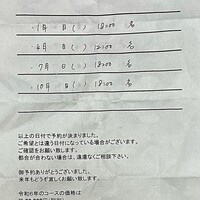 1月 日( ) 18:00 名
4月 日( ) 12:00 名
7月 日( ) 18:00 名
10月 日( ) 18:00 名
以上の日付で予約が決まりました。
ご希望とは違う日付になっている場合がございます。
ご確認をお願い致します。
都合が合わない場合は、遠慮なくご相談下さい。
御予約ありがとうございました。
来年もどうぞ宜しくお願い致します。
令和6年のコースの価格は